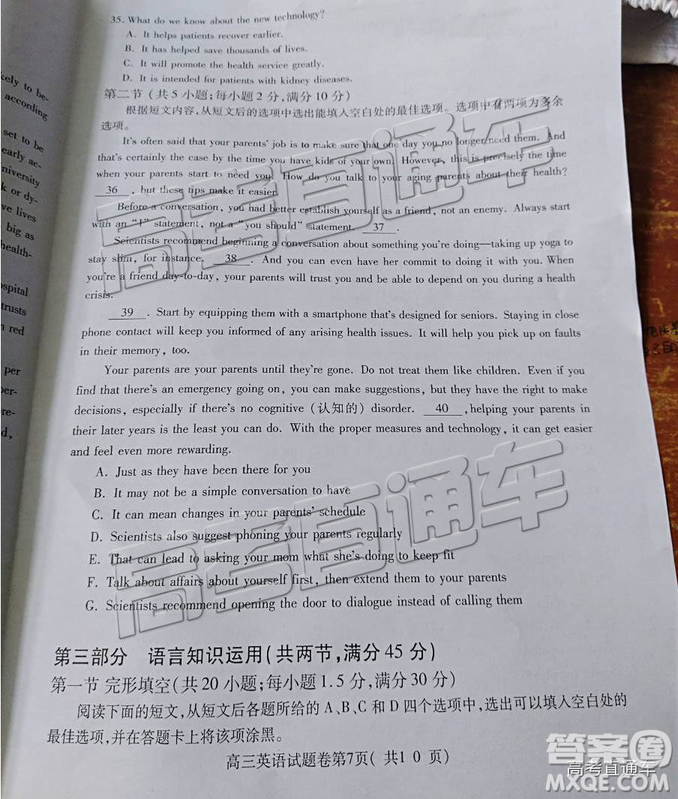 35. What do we know about the new technology?
A. It helps patients recover earlier.
B. It has helped save thousands of lives.
C. It will promote the health service greatly.
D. It is intended for patients with kidney diseases.
第二节 (共5小题;每小题2分,满分10分)
根据短文内容,从短文后的选项中选出能填入空白处的最佳选项。选项中有两项为多余
选项。
It's often said that your parents' job is to make sure that one day you no longer need them. And
that's certainly the case by the time you have kids of your own. However, this is precisely the time
when your parents start to need you. How do you talk to your aging parents about their health?
36 , but these tips make it easier.
Before a conversation, you had better establish yourself as a friend, not an enemy. Always start
with an "I" statement, not a "you should" statement. 37 .
Scientists recommend beginning a conversation about something you're doing—taking up yoga to
stay slim, for instance. 38 . And you can even have health goals in common. When
you're a friend day-to-day, your parents will trust you and be able to depend on you during a health
crisis.
39 . Start by equipping them with a smartphone that's designed for seniors. Staying in close
phone contact will keep you informed of any arising health issues. It will help you pick up on faults
in their memory, too.
Your parents are your parents until they're gone. Do not treat them like children. Even if you
find that there's an emergency going on, you can make suggestions, but they have the right to make
decisions, especially if there's no cognitive (认知的) disorder. 40 ,helping your parents in
their later years is the least you can do. With the proper measures and technology, it can get easier
and feel even more rewarding.
A. Just as they have been there for you
B. It may not be a simple conversation to have
C. It can mean changes in your parents' schedule
D. Scientists also suggest phoning your parents regularly
E. That can lead to asking your mom what she's doing to keep fit
F. Talk about affairs about yourself first, then extend them to your parents
G. Scientists recommend opening the door to dialogue instead of calling them
第三部分 语言知识运用(共两节,满分45分)
第一节 完形填空(共20小题;每小题1.5分,满分30分)
阅读下面的短文,从短文后各题所给的A、B、C和D四个选项中,选出可以填入空白处的
最佳选项,并在答题卡上将该项涂黑。
高三英语试题卷第7页( 共10 页)
kely to be-
according
set to be
early ac-
university
k or dy-
ve lives
big as
health-
spital
trusts
n red
per
per-
re-
d,
高考直通车
高考直通车
答案卷
高考直通车
MXQE.COM